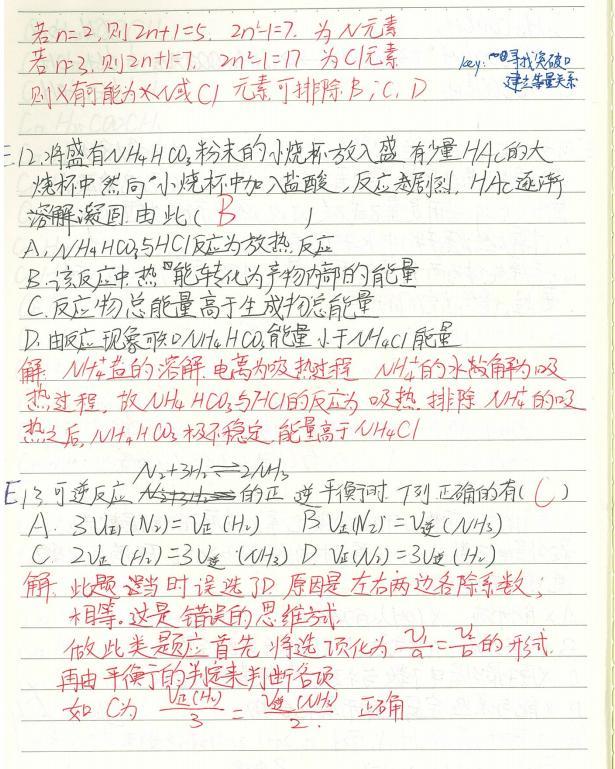 若n=2,则2n+1=5. 2n²-1=7. 为N元素
若n=3,则2n+1=7. 2n²-1=17 为Cl元素
key: 寻找突破口
建立等量关系
则X有可能为N或Cl 元素,可排除B;C,D
E12.将盛有NH4HCO3粉末的小烧杯放入盛有少量HAc的大
烧杯中 然向小烧杯中加入盐酸,反应剧烈,HAc逐渐
溶解凝固.由此( B )
A. NH4HCO3与HCl反应为放热反应
B.该反应中,热能转化为产物内部的能量
C.反应物总能量高于生成物总能量
D.由反应现象可知NH4HCO3能量小于NH4Cl能量
解: NH4+盐的溶解.电离为吸热过程 NH4+的水解为吸
热过程,故NH4HCO3与HCl的反应为吸热.排除NH4+的吸
热之后,NH4HCO3极不稳定,能量高于NH4Cl
N2+3H2⇌2NH3
E13.可逆反应 的正 逆平衡时.下列正确的有( C )
A. 3V正(N2)=V正(H2) B V正(N2)=V逆(NH3)
C. 2V正(H2)=3V逆(NH3) D V正(N2)=3V逆(H2)
解: 此题 当时误选了D.原因是左右两边各除系数;
相等.这是错误的思维方式.
做此类题应首先 将选项化为 V1/a=V2/b 的形式.
再由平衡的判定来判断各项
如 C为 V正(H2)/3 = V逆(NH3)/2. 正确